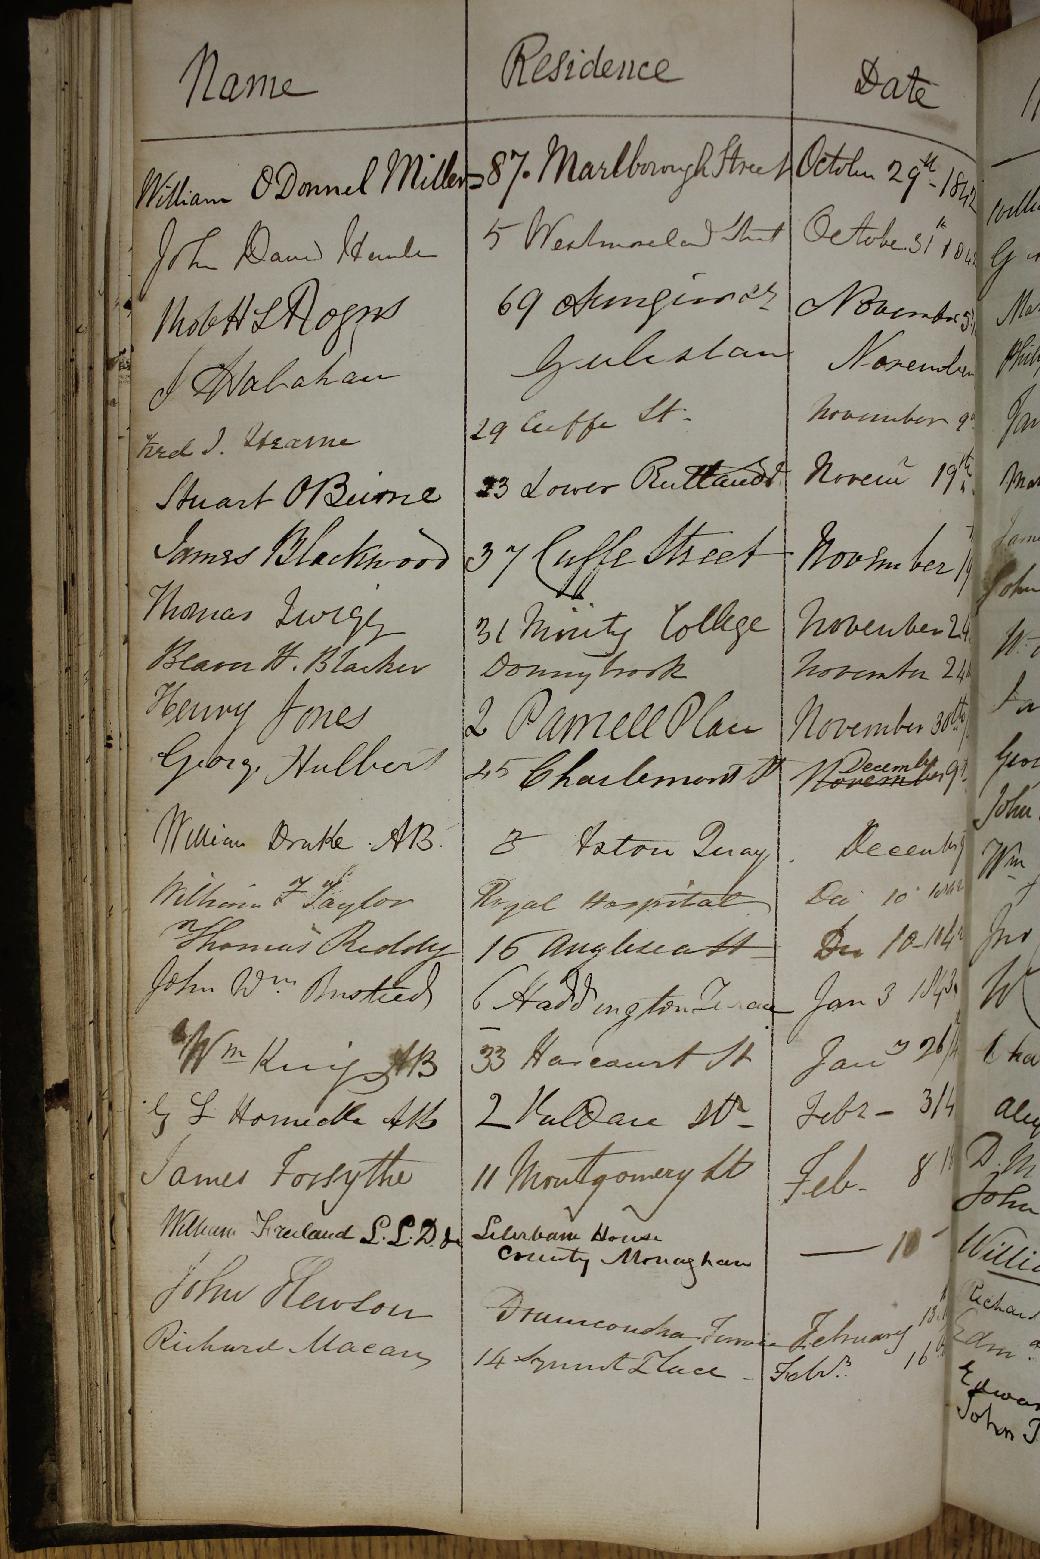 Name Residence Date
William O'Donnel Miller 87. Marlborough Street October 29th 1842
John David 5 Westmoreland Street October 31st 184
Robt H L Rogers 69 November 5
J November
Fred J. Hearne 29 Cuffe St. November 9
Stuart O'Beirne 23 Lower Rutland St Novem 19th
James Blackwood 37 Cuffe Street November 19
Thomas Twigg 31 Trinity College November 24
Beaver H. Blacker Donnybrook November 24
Henry Jones 2 Parnell Place November 30th
George Hulbert 45 Charlemont St November December 9
William Drake AB. 8 Aston Quay December 9
William F Taylor Royal Hospital Dec 10 1842
Thomas Reddy 16 Anglesea St Dec 10 1842
John Wm Busteed 6 Haddington Terrace Jan 3 1843
Wm King AB 33 Harcourt St Jany 26
G L AB 2 Kildare St Feb 3
James Forsythe 11 Montgomery St Feb. 8
William L.L.D. House
County Monaghan — 10
John Hewson Drumcondra Terrace February 13
Richard Macan 14 Place Feb. 16